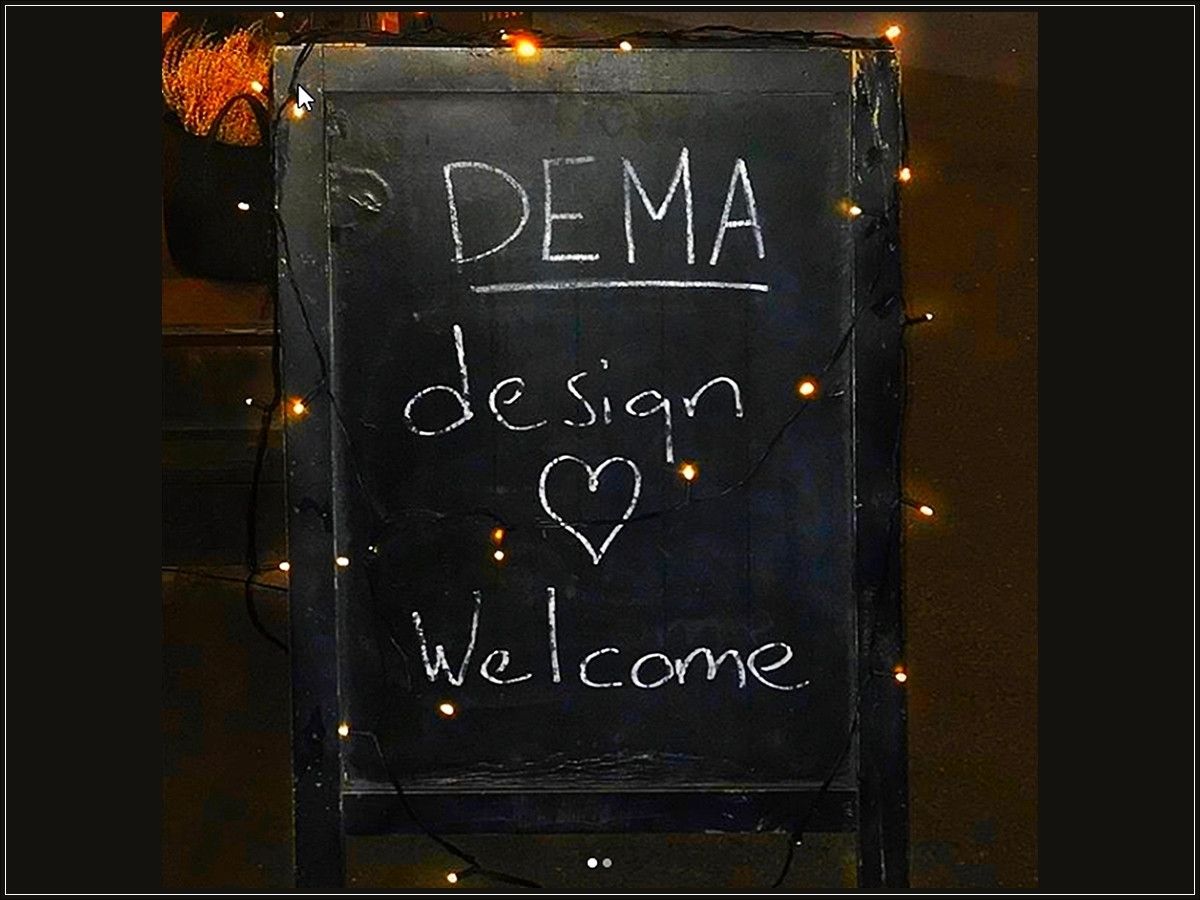 DEMA
design
Welcome